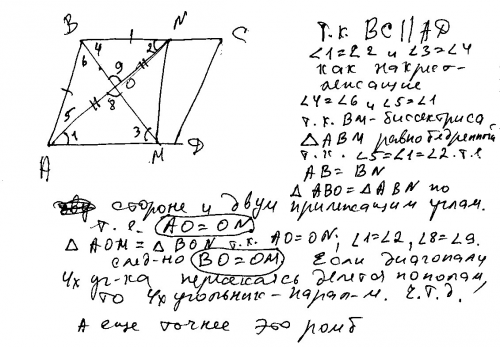 B 4 1 2 N C
6 9
O
8
5 1 3
A M D
т.к. BC||AD
∠1=∠2 и ∠3=∠4
как накрест-
лежащие
∠4=∠6 и ∠5=∠1
т.к. BM-биссектриса
△ABM равнобедренный
т.к. ∠5=∠1=∠2. т.е
AB=BN
△ABO=△ABN по
стороне и двум прилежащим углам.
т.е. AO=ON
△AOM=△BON т.к. AO=ON, ∠1=∠2, ∠8=∠9.
след-но BO=OM Если диагонали
4х уг-ка пересекаясь делятся пополам,
то 4х угольник-парал-м. Ч.Т.Д.
А еще точнее это ромб